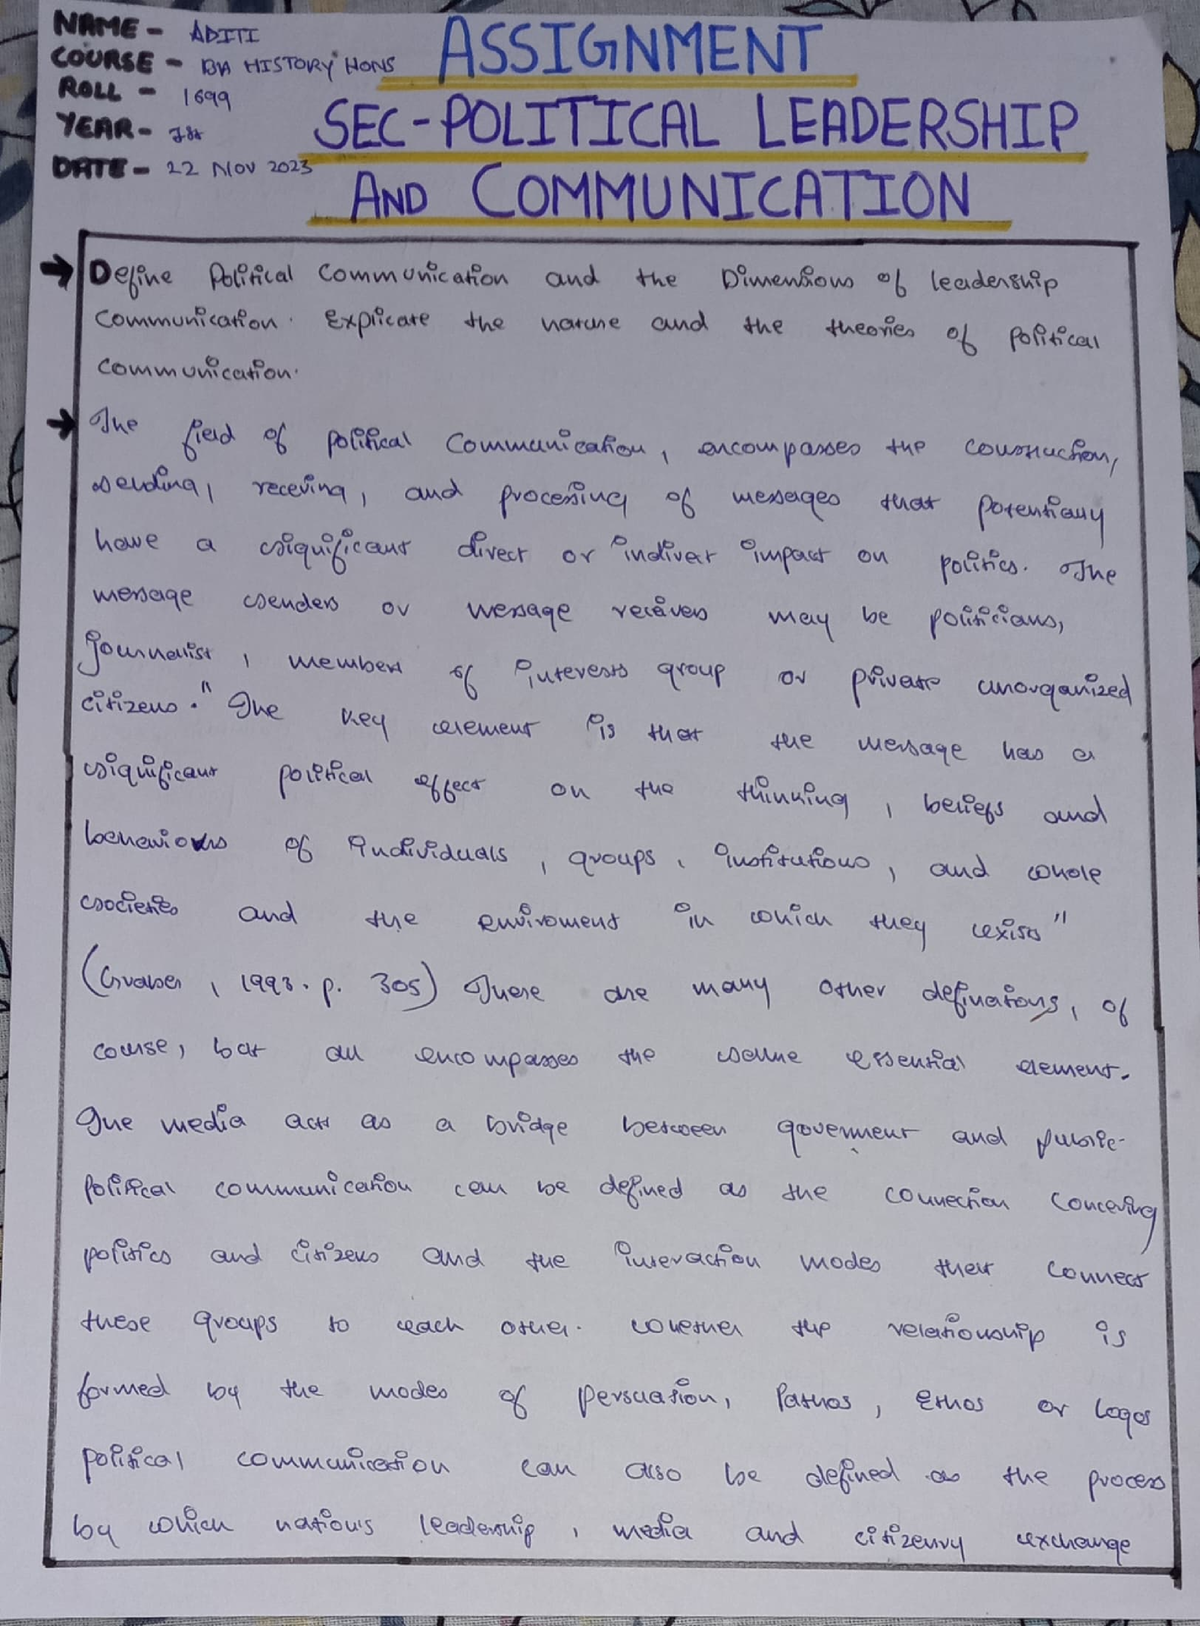 NAME - ADITI
COURSE - BA HISTORY HONS
ROLL - 1699
YEAR - Ist
DATE - 22 NOV 2023
ASSIGNMENT
SEC-POLITICAL LEADERSHIP
AND COMMUNICATION
→ Define Political Communication and the Dimensions of leadership
Communication. Explicate the nature and the theories of political
Communication.
→ The field of political Communication, encompasses the construction,
sending, receving, and processing of messages that potentially
have a significant direct or indirect impact on politics. The
message senders or message recievers may be politicians,
journalist, members of interests group or private unorganized
citizens." The key element is that the message has a
significant political effect on the thinking, beliefs and
behaviours of individuals, groups, institutions, and whole
societies and the enviroment in which they exists"
(Graber, 1993. p. 305) There are many other definations, of
course, but all encompasses the same essential element.
The media acts as a bridge between goverment and public-
political communication can be defined as the connection concering
politics and citizens and the interaction modes that connect
these groups to each other. Whether the relationship is
formed by the modes of persuation, Pathos, Ethos or Logos
political communication can also be defined as the process
by which nation's leadership, media and citizenry exchange